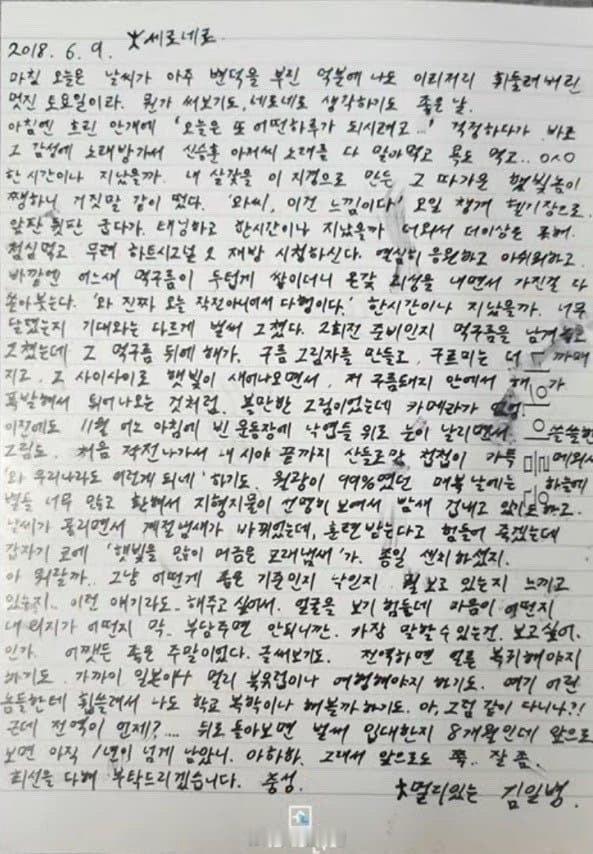 2018. 6. 9. 大세로네로
마침 오늘은 날씨가 아주 변덕을 부린 덕분에 나도 이리저리 휘둘려버린
멋진 토요일이라. 뭔가 써보기도, 세로네로 생각하기도 좋은 날.
아침엔 흐린 안개에 '오늘은 또 어떤하루가 되시려고...' 걱정하다가 바로
그 감성에 노래방가서 신승훈 아저씨 노래를 다 말아먹고 욕도 먹고.. ㅇㅅㅇ
한 시간이나 지났을까. 내 살갗을 이 지경으로 만든 그 따가운 햇빛놈이
쨍하니 거짓말 같이 떴다. '와씨, 이건 느낌이다' 오일 챙겨 헬기장으로.
앞판 뒷판 굽다가. 태닝하고 한시간이나 지났을까 더와서 더이상은 못해.
점심먹고 무려 하트시그널 2 재방 시청하신다. 열심히 응원하고 아쉬워하고.
바깥엔 어느새 먹구름이 두텁게 쌓이더니 온갖 괴성을 내면서 가진걸 다
쏟아붓는다. '와 진짜 오늘 작전아니어서 다행이다.' 한시간이나 지났을까. 너무
달랬는지 기대와는 다르게 벌써 그쳤다. 2회전 준비인지 먹구름을 남겨놓고
그쳤는데 그 먹구름 뒤에 해가. 구름 그림자를 만들고, 구르미는 더 까매
지고, 그 사이사이로 햇빛이 새어나오면서, 저 구름돼지 안에서 해가
폭발해서 튀어나오는 것처럼. 볼만한 그림이었는데 카메라가
이전에도 11월 어느 아침에 빈 운동장에 낙엽들 위로 눈이 날리면서 쓸쓸한
그림도. 처음 작전나가서 내 시야 끝까지 산들로만 첩첩이 가득 메워서
'와 우리나라도 이렇게 되네' 하기도. 월광이 99%였던 매복날에는 하늘에
별들 너무 많고 환해서 지형지물이 선명히 보여서 밤새 겁내고 있기도하고.
날씨가 풀리면서 계절냄새가 바뀌었는데, 훈련받는다고 힘들어 죽겠는데
갑자기 코에 '햇빛을 많이 머금은 모래냄새'가. 종일 센치하셨지.
아 뭐랄까.. 그냥 어떻게 좁은 기준인지 낙인지 뭘 보고 있는지 느끼고
있는지.. 이런 얘기라도.. 해주고 싶어서. 얼굴을 보기 힘든데 마음이 어떤지
내 의지가 어떤지 막.. 부담주면 안되니깐. 가장 말할 수 있는건. 보고싶어.
인가. 어쨋든 좋은 주말이었다. 글써보기도. 전역하면 얼른 복귀해야지
하기도. 가까이 일본이나 멀리 북유럽이나 여행해야지 하기도. 여기 어린
놈들한테 휩쓸려서 나도 학교 복학이나 해볼까하기도. 아, 그럼 같이 다니나?!
근데 전역이 언제?.... 뒤로 돌아보면 벌써 입대한지 8개월인데 앞으로
보면 아직 1년이 넘게 남았니. 아하하. 그래서 앞으로도 쭉.. 잘 좀.
최선을 다해 부탁드리겠습니다. 충성.
大멀리있는 김일병.